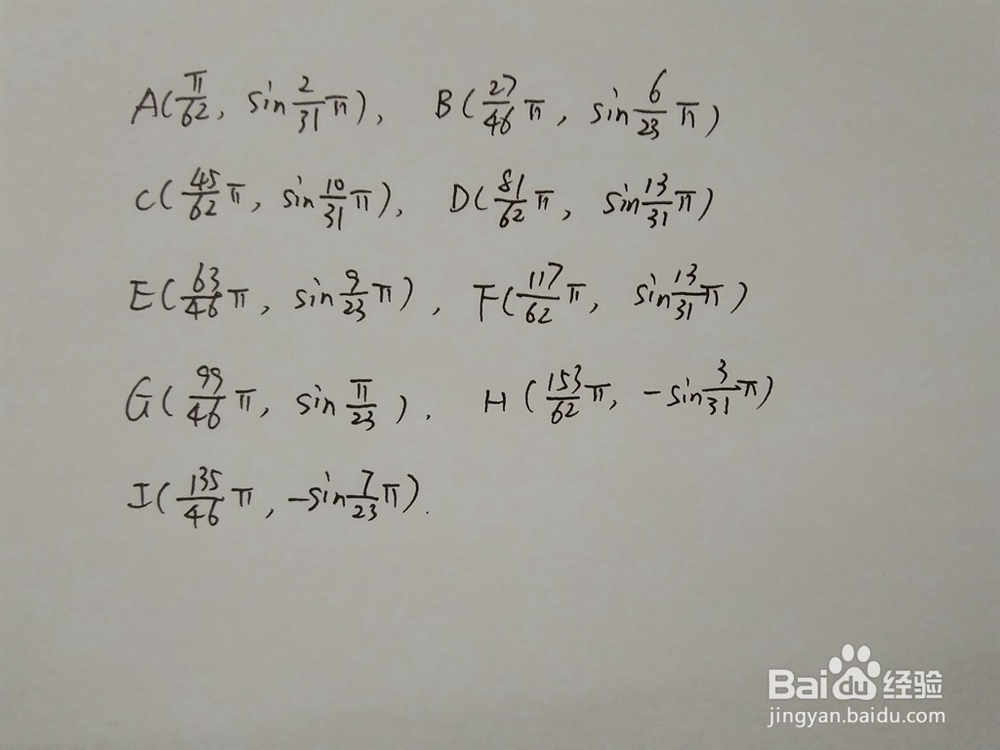 A(π/62, sin 2/31 π), B(27/46 π, sin 6/23 π)
C(45/62 π, sin 10/31 π), D(81/62 π, sin 13/31 π)
E(63/46 π, sin 9/23 π), F(117/62 π, sin 13/31 π)
G(99/46 π, sin π/23). H(153/62 π, -sin 3/31 π)
I(135/46 π, -sin 7/23 π).
Baidu 经验
jingyan.baidu.com